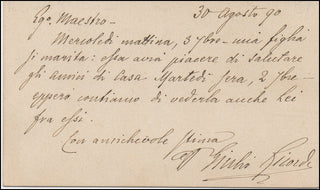 30 Agosto 90
Egº. Maestro -
Mercoledì mattina, 3 7bre - mia figlia
si marita: essa avrà piacere di salutare
gli amici di casa Martedì sera, 2 7bre -
eppero contiamo di vederla anche Lei
fra essi.
Con amichevole stima
Giulio Ricordi